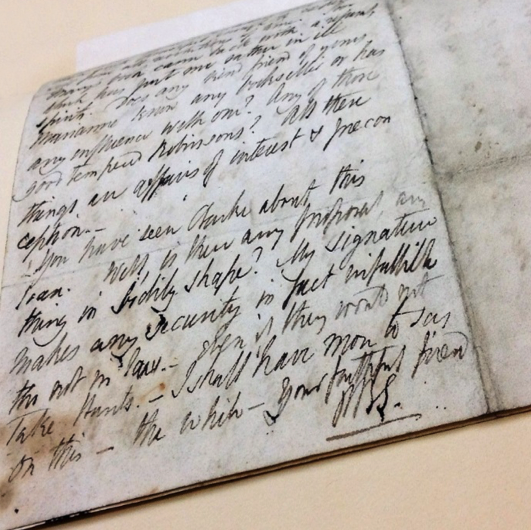 spirits. Does any kind friend of yours
Marianne know any bookseller or has
any influence with one? Any of those
good tempered Robinsons? All these
things are affairs of interest & precon
ception.—
You have seen Clarke about this
loan. Well, is there any proposal any
thing in bodily shape? My signature
makes any security in fact infallible
tho not in law.— Even if they would not
take Hunts.— I shall have more to say
on this— the while— Your faithful friend
PBS.